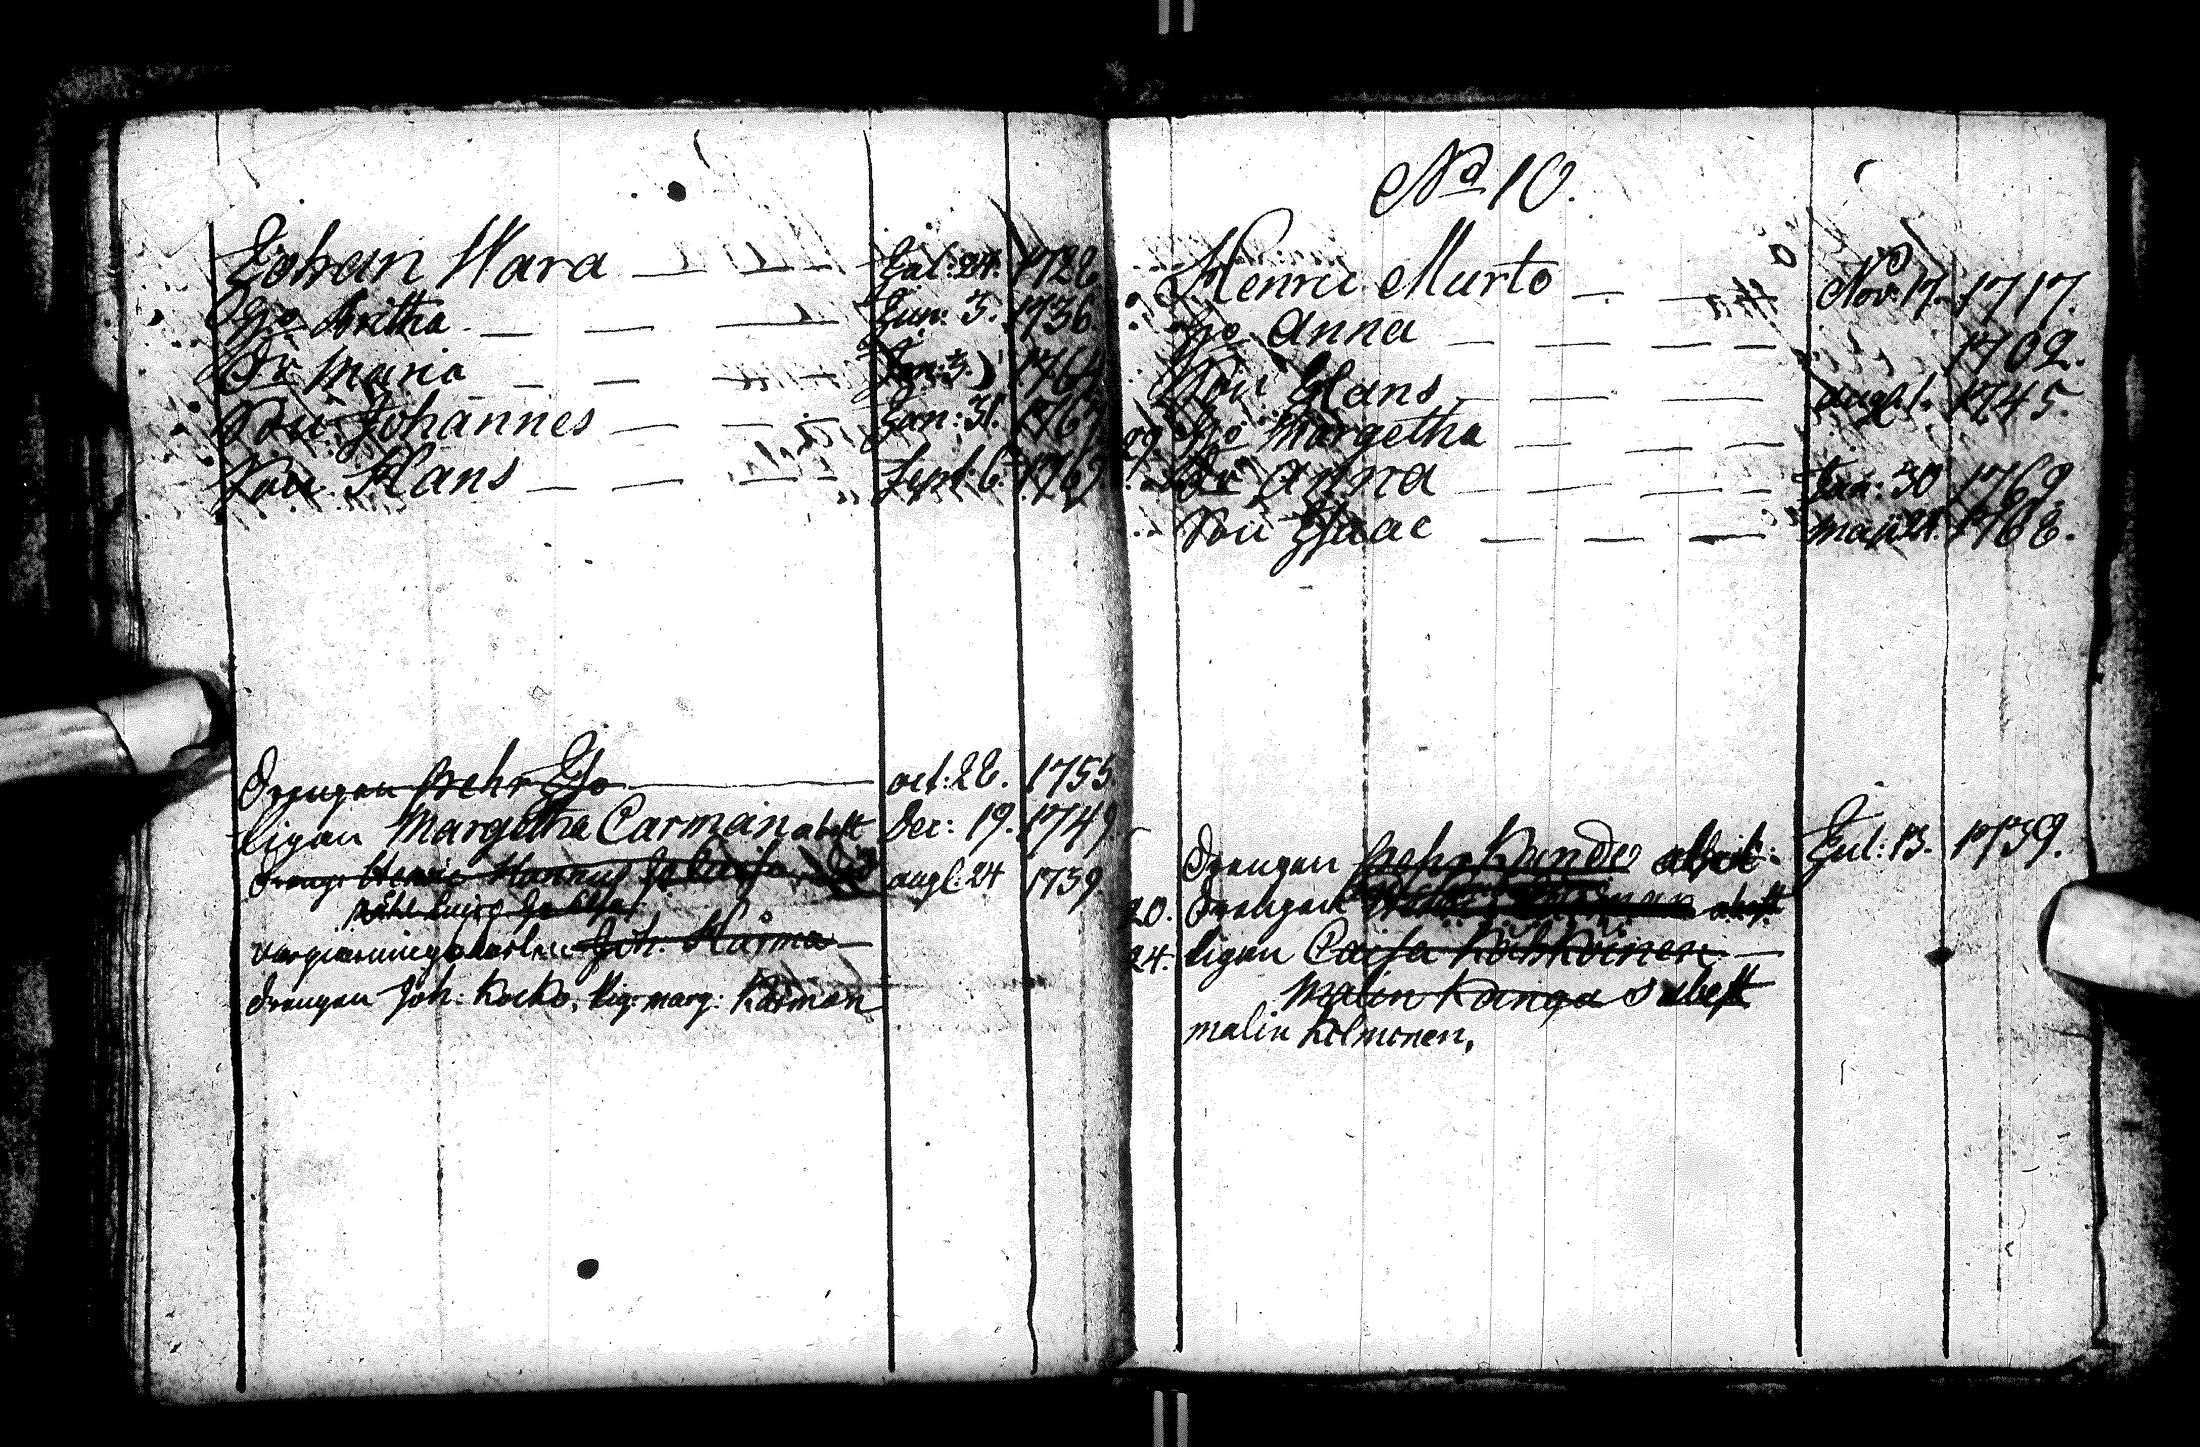 Johan Wara Jul: 24. 1728
Hjo Britha Jun: 5. 1736.
Dr Maria Jan: 3. 1764
Son Johannes Jan: 31. 1767
Son Hans Sept: 6. 1769
Drengen Pehr oct: 28. 1755.
Pigan Margetha Carman abest Dec: 19. 1749.
Dreng: Henric augl: 24 1739
Joh. Harma
Drengen Joh: Kocko, Pig: marg: Karman
No 10.
Henric Murto Nov: 17. 1717.
Hjo Anna 1702.
Son Hans augl: 1. 1745.
Hjo Margetha
Dr Anna Jan: 30 1769.
Son Isaac maji 21. 1768.
Drengen Pehr Kunde abiit: Jul: 13. 1739.
20. Drengen abest
24. Pigan Caisa
Malin Kanga abest
malin Kolmonen,